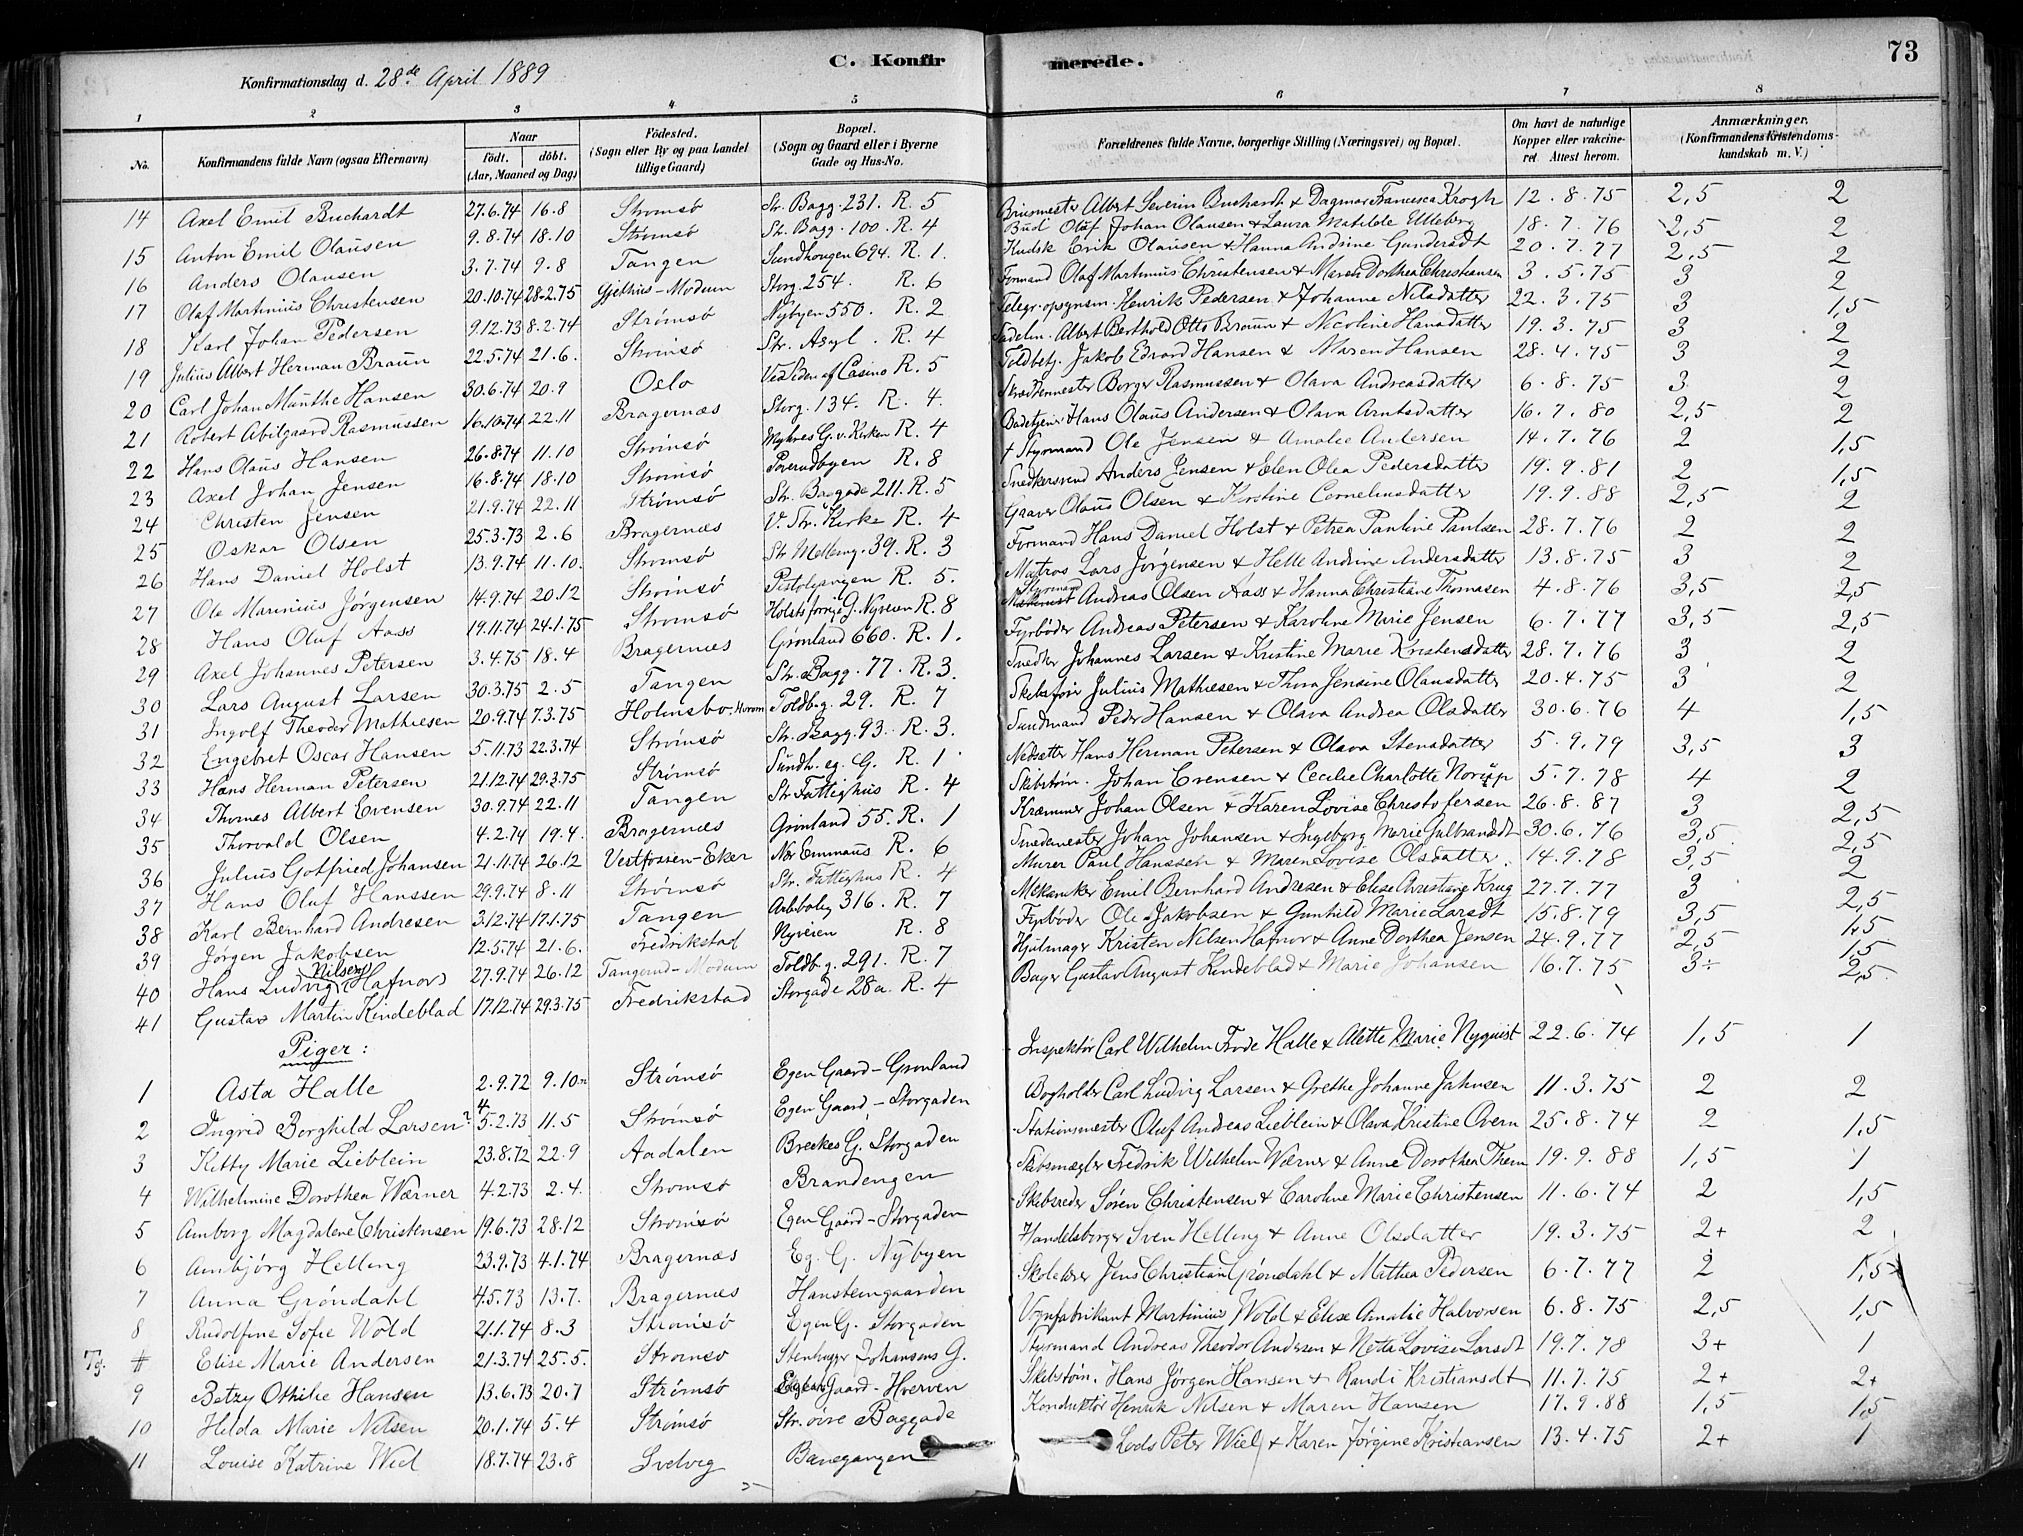 73
C. Konfirmerede.
Konfirmationsdag d. 28de April 1889
1 2 3 4 5 6 7 8
No. | Konfirmandens fulde Navn (ogsaa Efternavn) | Naar født. døbt. (Aar, Maaned og Dag) | Fødested. (Sogn eller By og paa Landet tillige Gaard) | Bopæl. (Sogn og Gaard eller i Byerne Gade og Hus-No. | Forældrenes fulde Navne, borgerlige Stilling (Næringsvei) og Bopæl. | Om havt de naturlige Kopper eller vakcineret. Attest herom. | Anmærkninger. (Konfirmandens Kristendomskundskab m. V.)
14 Axel Emil Buchardt 27.6.74 16.8 Strømsø Str. Bagg. 231. R. 5 Albert Severin Buchardt & Dagmar Francesca Krogh 12.8.75 2,5 2
15 Anton Emil Olausen 9.8.74 18.10 Strømsø Str. Bagg. 100. R. 4 Bud Oluf Johan Olausen & Laura Matilde Elleberg 18.7.76 2,5 2
16 Anders Olausen 3.7.74 9.8 Tangen Sundhougen 694. R. 1. Kudsk Erik Olausen & Hanna Andrine Gundersdt 20.7.77 2,5 2
17 Olaf Martinius Christensen 20.10.74 28.2.75 Gjethus-Modum Storg. 254. R. 6 Formand Olaf Martinius Christensen & Maren Dorthea Christiansen 3.5.75 3 2
18 Karl Johan Pedersen 9.12.73 8.2.74 Strømsø Nybyen 550. R. 2 Telegr. opsynsm. Henrik Pedersen & Johanne Nilsdatter 22.3.75 3 1,5
19 Julius Albert Herman Braun 22.5.74 21.6. Strømsø Str. Asyl. R. 4 Sadelm. Albert Berthold Otto Braun & Nicoline Hansdatter 19.3.75 3 2
20 Carl Johan Munthe Hansen 30.6.74 20.9 Oslo Ved Siden af Casino R. 5 Toldbetj. Jakob Edvard Hansen & Maren Hansen 28.4.75 3 2
21 Robert Abilgaard Rasmussen 16.10.74 22.11 Bragernæs Storg. 134. R. 4. Skræddermester Borger Rasmussen & Olava Andreasdatter 6.8.75 3 2
22 Hans Olaus Hansen 26.8.74 11.10 Strømsø Myhres G. v. Kirken R. 4 Badetjener Hans Olaus Andersen & Olava Arntsdatter 16.7.80 2,5 2
23 Axel Johan Jensen 16.8.74 18.10 Strømsø R. 8 + Styrmand Ole Jensen & Amalie Andersen 14.7.76 2 1,5
24 Christen Jensen 21.9.74 22.11 Strømsø Str. Baggade 211. R. 5 Snedkersvend Anders Jensen & Elen Olea Pedersdatter 19.9.81 2 1,5
25 Oskar Olsen 25.3.73 2.6 Bragernæs V. Str. Kirke R. 4 Graver Olaus Olsen & Kirstine Corneliusdatter 19.9.88 2,5 2
26 Hans Daniel Holst 13.9.74 11.10. Strømsø Str. Melleng. 39. R. 3 Formand Hans Daniel Holst & Petrea Pauline Paulsen 28.7.76 2 2
27 Ole Marinius Jørgensen 14.9.74 20.12 Strømsø Pistolgangen R. 5. Matros Lars Jørgensen & Helle Andrine Andersdatter 13.8.75 3 2
28 Hans Oluf Aass 19.11.74 24.1.75 Strømsø G. Nyveien R. 8 Styrmand Andreas Olsen Aass & Hanna Christiane Thomasen 4.8.76 3,5 2,5
29 Axel Johannes Petersen 3.4.75 18.4 Bragernæs Grønland 660. R. 1. Fyrbøder Andreas Petersen & Karoline Marie Jensen 6.7.77 3,5 2,5
30 Lars August Larsen 30.3.75 2.5 Tangen Str. Bagg. 77. R. 3. Snedker Johannes Larsen & Kristine Marie Kristensdatter 28.7.76 3 2
31 Ingolf Theodor Mathiesen 20.9.74 7.3.75 Holmsbo, Hurum Toldb.g. 29. R. 7 Skibsfør. Julius Mathiesen & Thora Jensine Olausdatter 20.4.75 3 2
32 Engebret Oscar Hansen 5.11.73 22.3.74 Strømsø Str. Bagg. 93. R. 3. Sundmand Peder Hansen & Olava Andrea Olsdatter 30.6.76 4 1,5
33 Hans Herman Petersen 21.12.74 29.3.75 Strømsø Sundh. eg. G. R. 1 Nedsætter Hans Herman Petersen & Olava Stensdatter 5.9.79 3,5 3
34 Thomas Albert Evensen 30.9.74 22.11 Tangen Str. Fattighus R. 4 Skibstøm. Johan Evensen & Cecilie Charlotte Norupp 5.7.78 4 2
35 Thorvald Olsen 4.2.74 19.4. Bragernæs Grønland 55. R. 1 Kræmmer Johan Olsen & Karen Lovise Christofersen 26.8.87 3 2,5
36 Julius Gotfried Johansen 21.11.74 26.12 Vestfossen-Eker Nær Emmaus R. 6 Smedemester Johan Johansen & Ingeborg Marie Gulbrandsdt 30.6.76 3,5 2,5
37 Hans Oluf Hanssen 29.9.74 8.11 Strømsø Str. Fattighus R. 4 Murer Paul Hanssen & Maren Lovise Olsdatter. 14.9.78 3,5 2
38 Karl Bernhard Andresen 3.12.74 17.1.75 Tangen Arbbolig 316. R. 7 Mekaniker Emil Bernhard Andresen & Elise Christiane Krug 27.7.77 3 2,5
39 Jørgen Jakobsen 12.5.74 21.6. Fredrikstad Nyveien R. 8 Fyrbøder Ole Jakobsen & Gunhild Marie Larsdt 15.8.79 3,5 1,5
40 Hans Ludvig (Nilsen) Hafnor 27.9.74 26.12 Tangerud-Modum Toldb.g. 291. R. 7 Hjulmager Kristen Nilsen Hafnor & Anne Dorthea Jensen 24.9.77 2,5 1,5
41 Gustav Martin Kindeblad 17.12.74 29.3.75 Fredrikstad Storgade 28a. R. 4 Bager Gustav August Kindeblad & Marie Johansen 16.7.75 3÷ 2,5
Piger:
1 Asta Halle 2.9.72 9.10 Strømsø Egen Gaard-Grønland Inspektør Carl Wilhelm Frode Halle & Alette Marie Nyquist 22.6.74 1,5 1
2 Ingrid Borghild Larsen 5.2.73 11.5 Strømsø Egen Gaard-Storgaden Bogholder Carl Ludvig Larsen & Grethe Johanne Jahnsen 11.3.75 2 2
3 Kitty Marie Lieblein 23.8.72 22.9 Aadalen Breckes G. Storgaden Stationsmester Oluf Andreas Lieblein & Olava Kristine Overn 25.8.74 2 1,5
4 Wilhelmine Dorothea Wærner 4.2.73 2.4. Strømsø Brandengen Skibsmægler Fredrik Wilhelm Wærner & Anne Dorothea Them 19.9.88 1,5 1
5 Amborg Magdalene Christensen 19.6.73 28.12 Strømsø Egen Gaard-Storgaden Skibsreder Søren Christensen & Caroline Marie Christensen 11.6.74 2 1,5
6 Ambjørg Helling 23.9.73 4.1.74 Bragernæs Eg. G. Nybyen Handelsborger Sven Helling & Anne Olsdatter 19.3.75 2+ 2
7 Anna Grøndahl 4.5.73 13.7. Bragernæs Hansteengaarden Skolelærer Jens Christian Grøndahl & Mathea Pedersen 6.7.77 2 1,5
8 Rudolfine Sofie Wold 21.1.74 8.3 Strømsø Egen G. Storgaden Vognfabrikant Martinius Wold & Elise Amalie Halvorsen 6.8.75 2,5 1,5
Tg. # Elise Marie Andersen 21.3.74 25.5. Strømsø Stenhugger Johansens G. Styrmand Andreas Theodor Andersen & Netta Lovise Larsdt 19.7.78 3+ 1
9 Betzy Othilie Hansen 13.6.73 20.7 Strømsø Gaard-Hverven Skibstøm. Hans Jørgen Hansen & Randi Kristiansdt 11.7.75 2+ 2+
10 Hilda Marie Nilsen 20.1.74 5.4 Strømsø Str. øvre Baggade Konduktør Henrik Nilsen & Maren Hansen 17.9.88 1,5 1,5
11 Louise Katrine Wiel 18.7.74 23.8 Svelvig Banegangen Lods Peter Wiel & Karen Jørgine Kristiansen 13.4.75 2+ 1